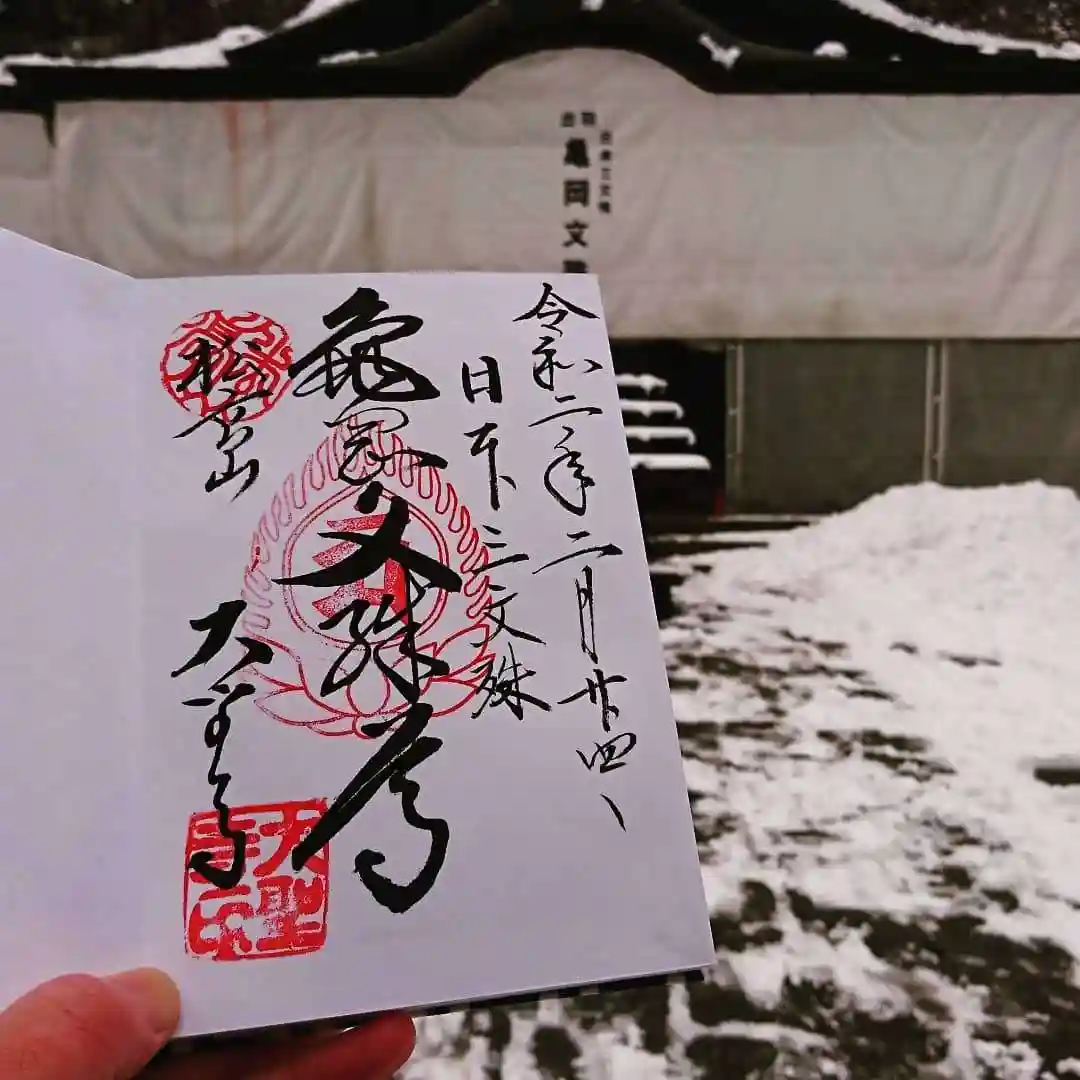 亀岡文
令和二年二月廿四日
日本三文殊
亀岡文殊尊
松高山
大聖寺
大聖寺印